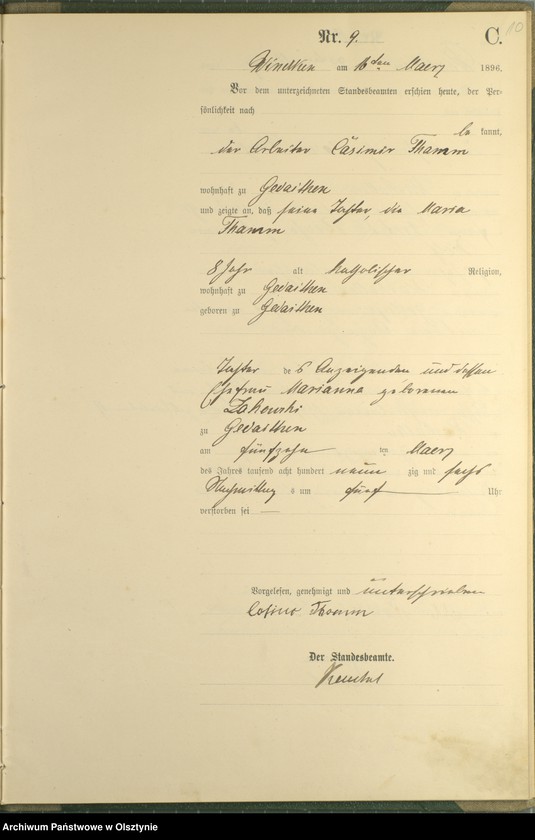 10
Nr. 9.
C.
am 16ten Maerz 1896.
Vor dem unterzeichneten Standesbeamten erschien heute, der Per-
sönlichkeit nach
bekannt,
der Arbeiter Casimir Thamm
wohnhaft zu Gedaithen
und zeigte an, daß seine Tochter, die Maria
Thamm
8 Jahr alt katholischer Religion,
wohnhaft zu Gedaithen
geboren zu Gedaithen
Tochter des Anzeigenden und dessen
Ehefrau Marianna geborenen
Zakewski
zu Gedaithen
am fünfzehn ten Maerz
des Jahres tausend acht hundert neunzig und sechs
Nachmittags um fünf Uhr
verstorben sei
Vorgelesen, genehmigt und unterschrieben
Thamm
Der Standesbeamte.
Archiwum Państwowe w Olsztynie